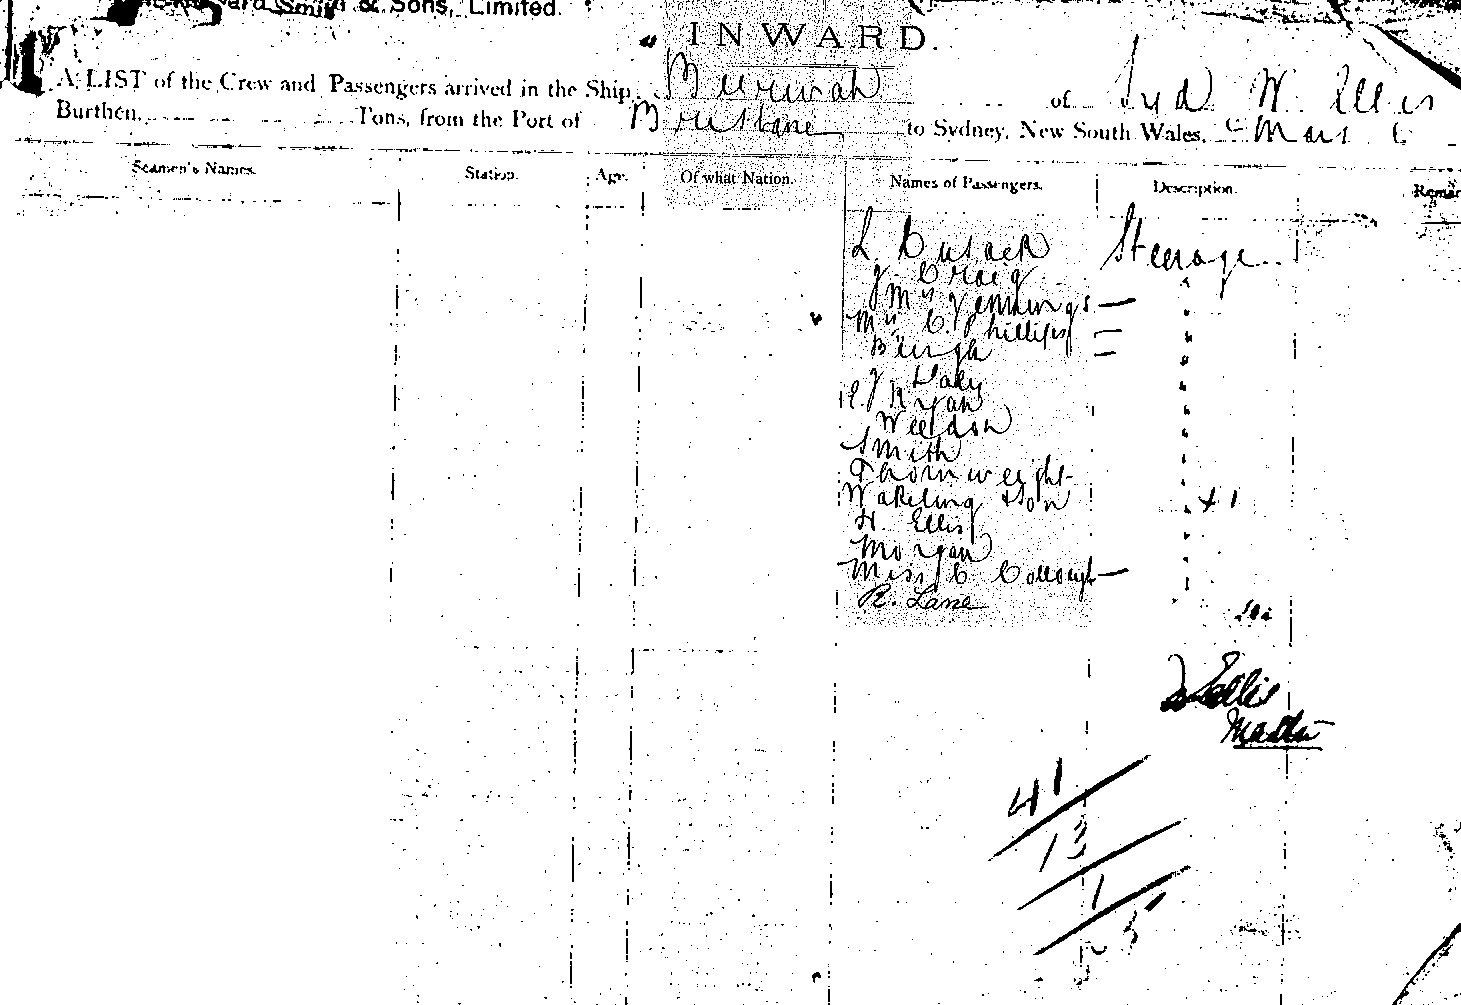 Smith & Sons, Limited.
INWARD.
A LIST of the Crew and Passengers arrived in the Ship Burwah of Syd W. Ellis
Burthen, Tons, from the Port of Brisbane to Sydney, New South Wales, Mar 6
Seamen's Names. Station. Age. Of what Nation. Names of Passengers. Description.
L. Cusack Steerage
J. Craig "
J Mrs Jennings — "
Mrs C. Phillips — "
—
J Daly "
J Ryan "
Weldon "
Smith "
Thornweight "
Wakeling & Son " + 1
H. Ellis "
Morgan "
Miss C —
R. Lane
W Ellis
Master
41
13
1